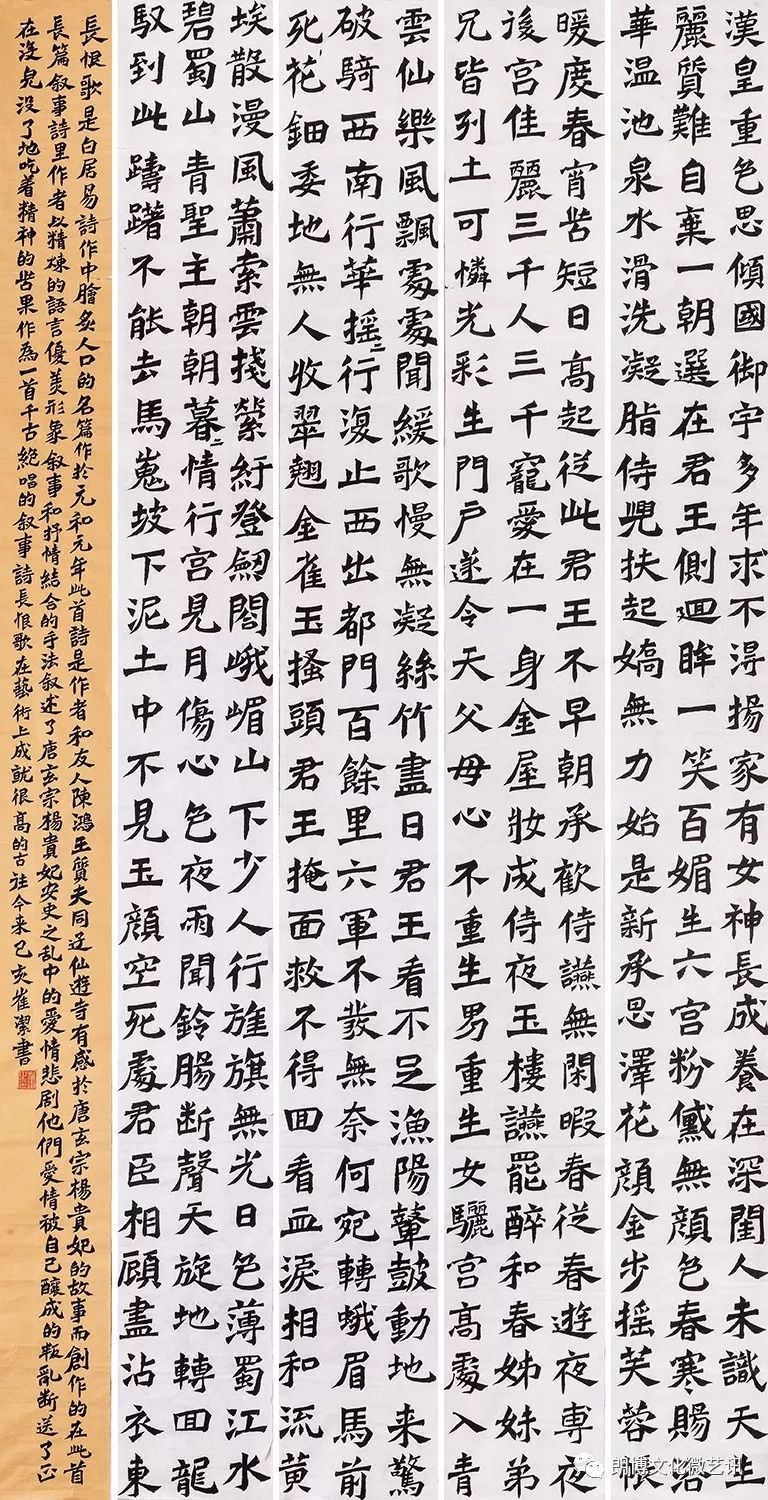 漢皇重色思傾國御宇多年求不得揚家有女神長成養在深閨人未識天生
麗質難自棄一朝選在君王側迴眸一笑百媚生六宮粉黛無顏色春寒賜浴
華温池泉水滑洗凝脂侍兒扶起嬌無力始是新承恩澤花顏金步摇芙蓉帳
暖度春宵苦短日高起從此君王不早朝承歡侍讌無閑暇春從春遊夜専夜
後宮佳麗三千人三千寵愛在一身金屋妝成侍夜玉樓讌罷醉和春姊妹弟
兄皆列土可憐光彩生門戶遂令天父母心不重生男重生女驪宮高處入青
雲仙樂風飄處處聞緩歌慢無凝絲竹盡日君王看不足漁陽鼙鼓動地来驚
破騎西南行華摇〻行復止西出都門百餘里六軍不發無奈何宛轉蛾眉馬前
死花鈿委地無人收翠翹金雀玉搔頭君王掩面救不得回看血淚相和流黄
埃散漫風蕭索雲棧縈紆登劒閣峨嵋山下少人行旌旗無光日色薄蜀江水
碧蜀山青聖主朝朝暮〻情行宮見月傷心色夜雨聞鈴腸断聲天旋地轉回龍
馭到此躊躇不能去馬嵬坡下泥土中不見玉顏空死處君臣相顧盡沾衣東
長恨歌是白居易詩作中膾炙人口的名篇作於元和元年此首詩是作者和友人陳鴻王質夫同逰仙遊寺有感於唐玄宗楊貴妃的故事而創作的在此首
長篇叙事詩里作者以精煉的語言優美形象叙事和抒情結合的手法叙述了唐玄宗楊貴妃安史之乱中的愛情悲剧他們愛情被自己釀成的叛亂断送了正
在沒兒沒了地吃着精神的苦果作為一首千古絶唱的叙事詩長恨歌在藝術上成就很高的古往今来己亥崔潔書
朗博文化微艺讯